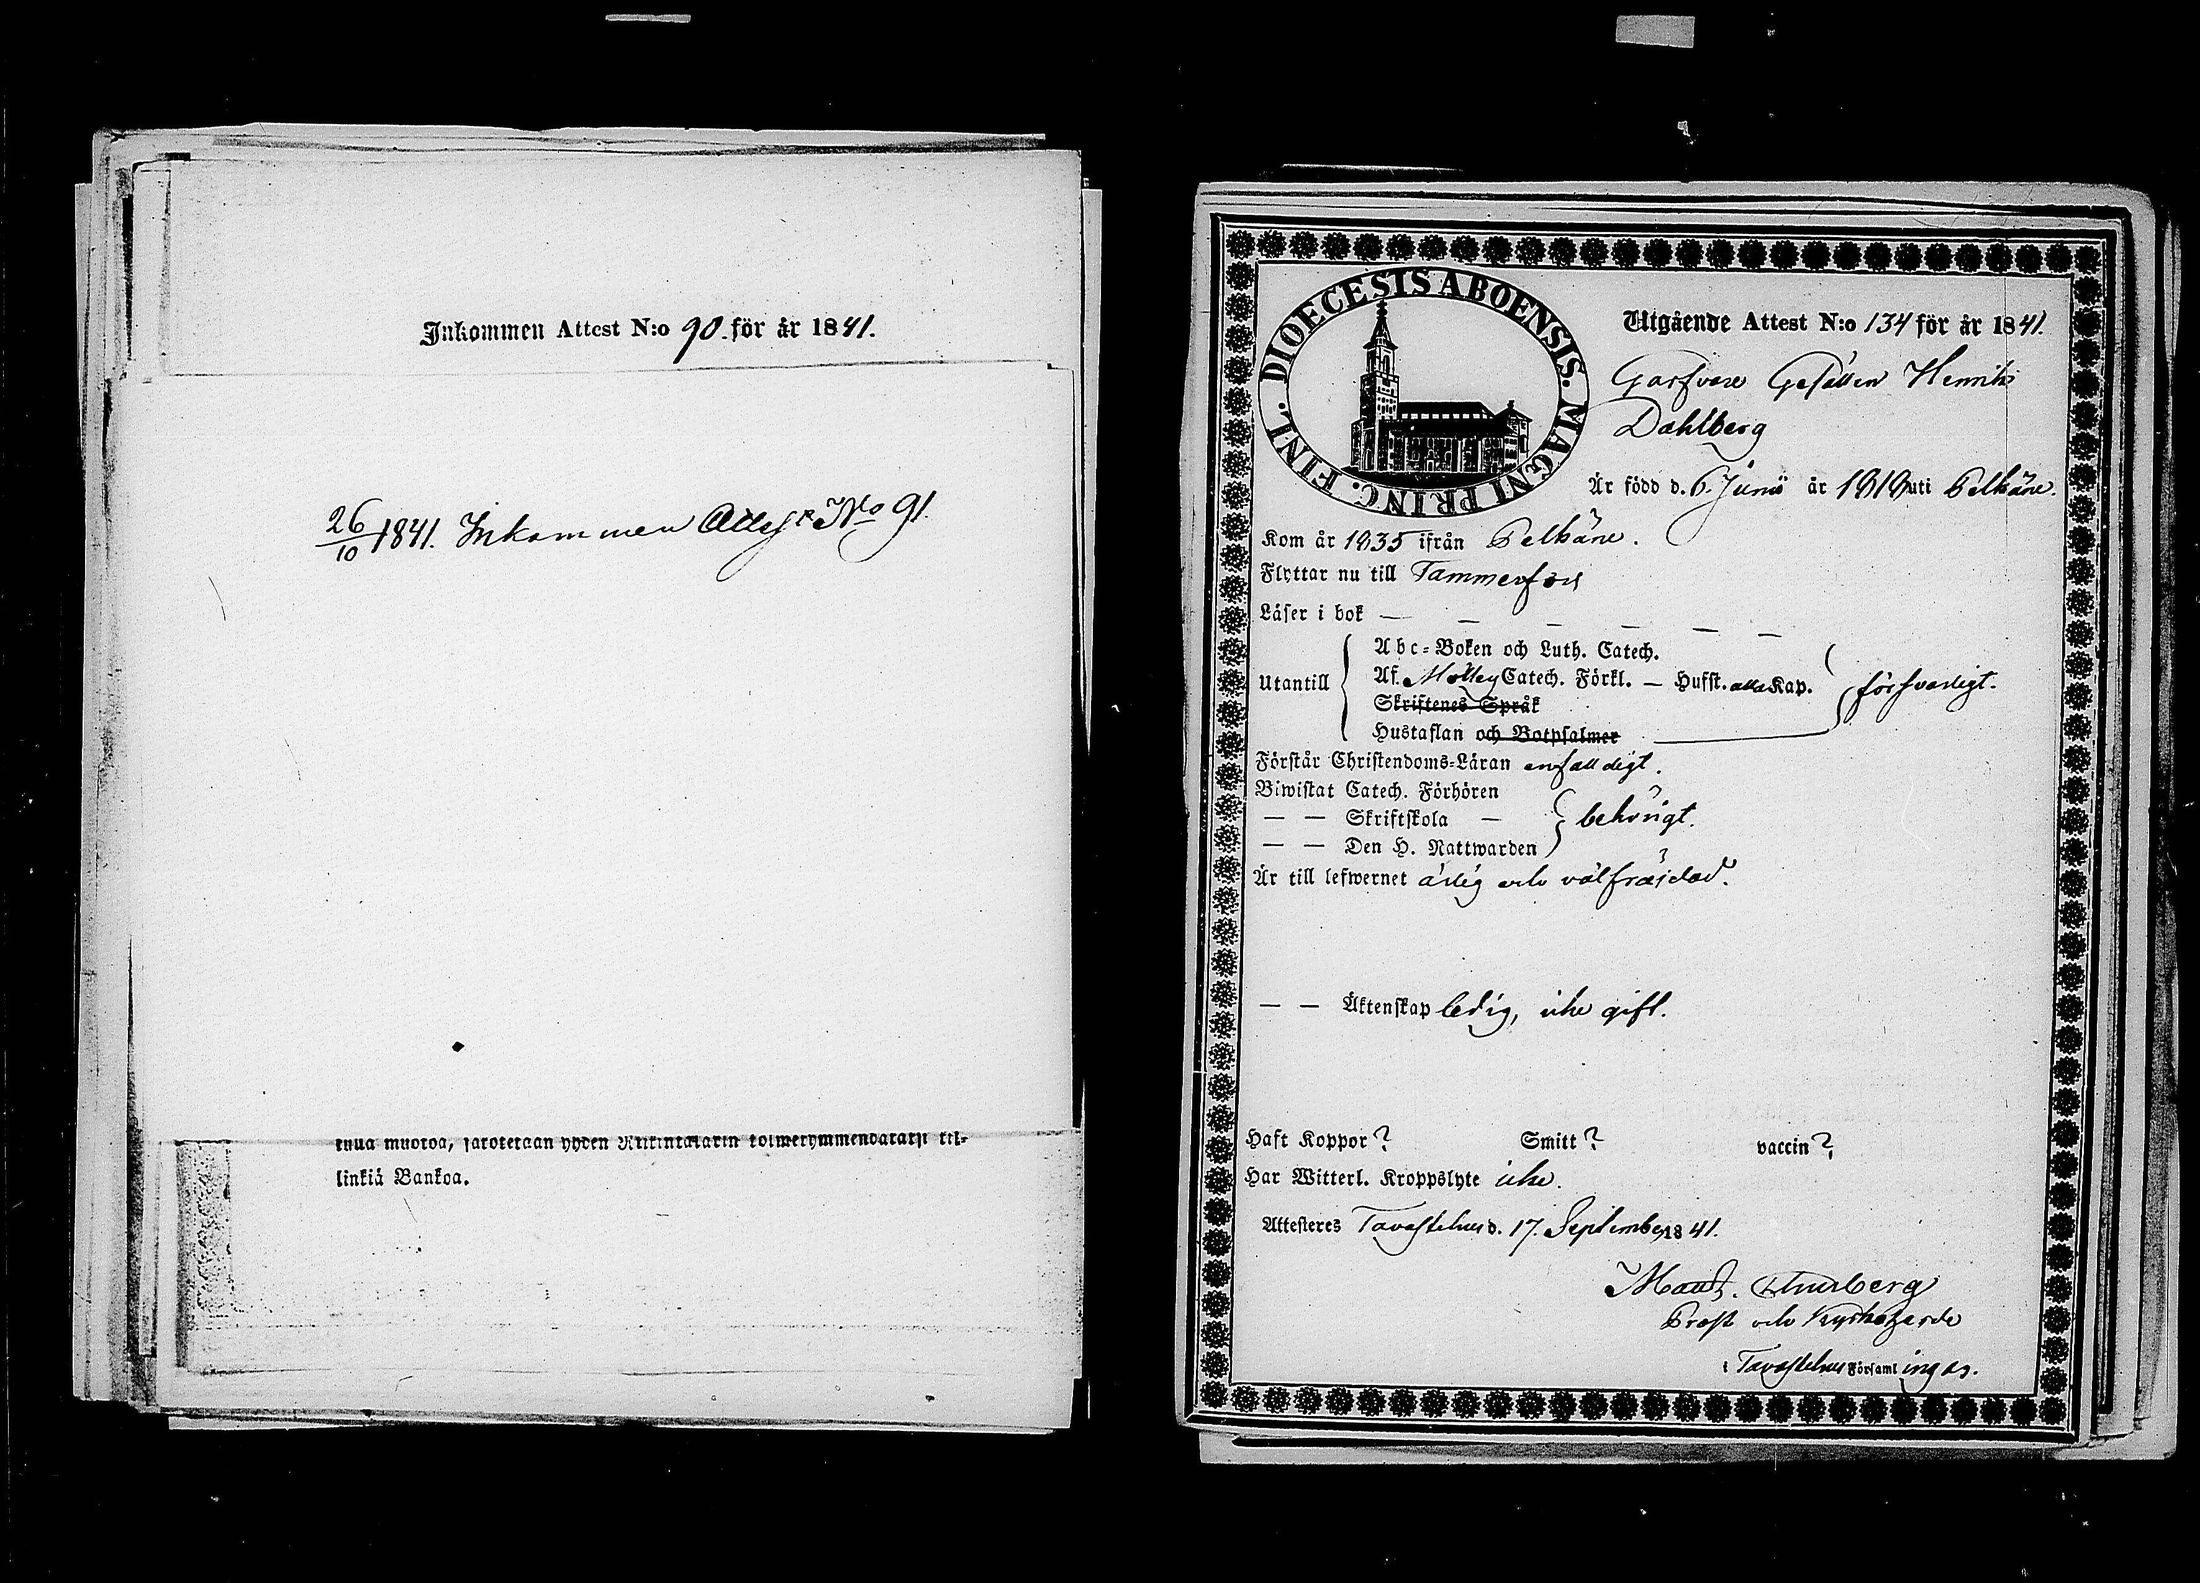 Inkommen Attest N:o 90. för år 1841.
26/10 1841. Inkommen Attest No 91.
linkiä Bankoa.
DIOECESIS ABOENSIS. MAGNI PRINC. FINL.
Utgående Attest N:o 134 för år 1841.
Garfvare Gesällen Henrik
Dahlberg
Är född d. 6. Junii år 1819 uti Pelkäne.
Kom år 1835 ifrån Pelkäne.
Flyttar nu till Tammerfors
Läser i bok — — — — — —
Abc-Boken och Luth. Catech.
Utantill Af. Catech. Förkl. — Hufst. alla Kap. försvarligt.
Skriftenes Språk
Hustaflan och Botpsalmer
Förstår Christendoms-Läran enfaldigt.
Biwistat Catech. Förhören
— — Skriftskola — behörigt.
— — Den H. Nattwarden
Är till lefwernet ärlig och välfräjdad.
— — Äktenskap ledig, icke gift.
Haft Koppor? Smitt? vaccin?
Har Witterl. Kroppslyte icke.
Attesteres Tavastehus d. 17. September 1841.
Prost och Kyrkoherde
i Tavastehus Församlingar.